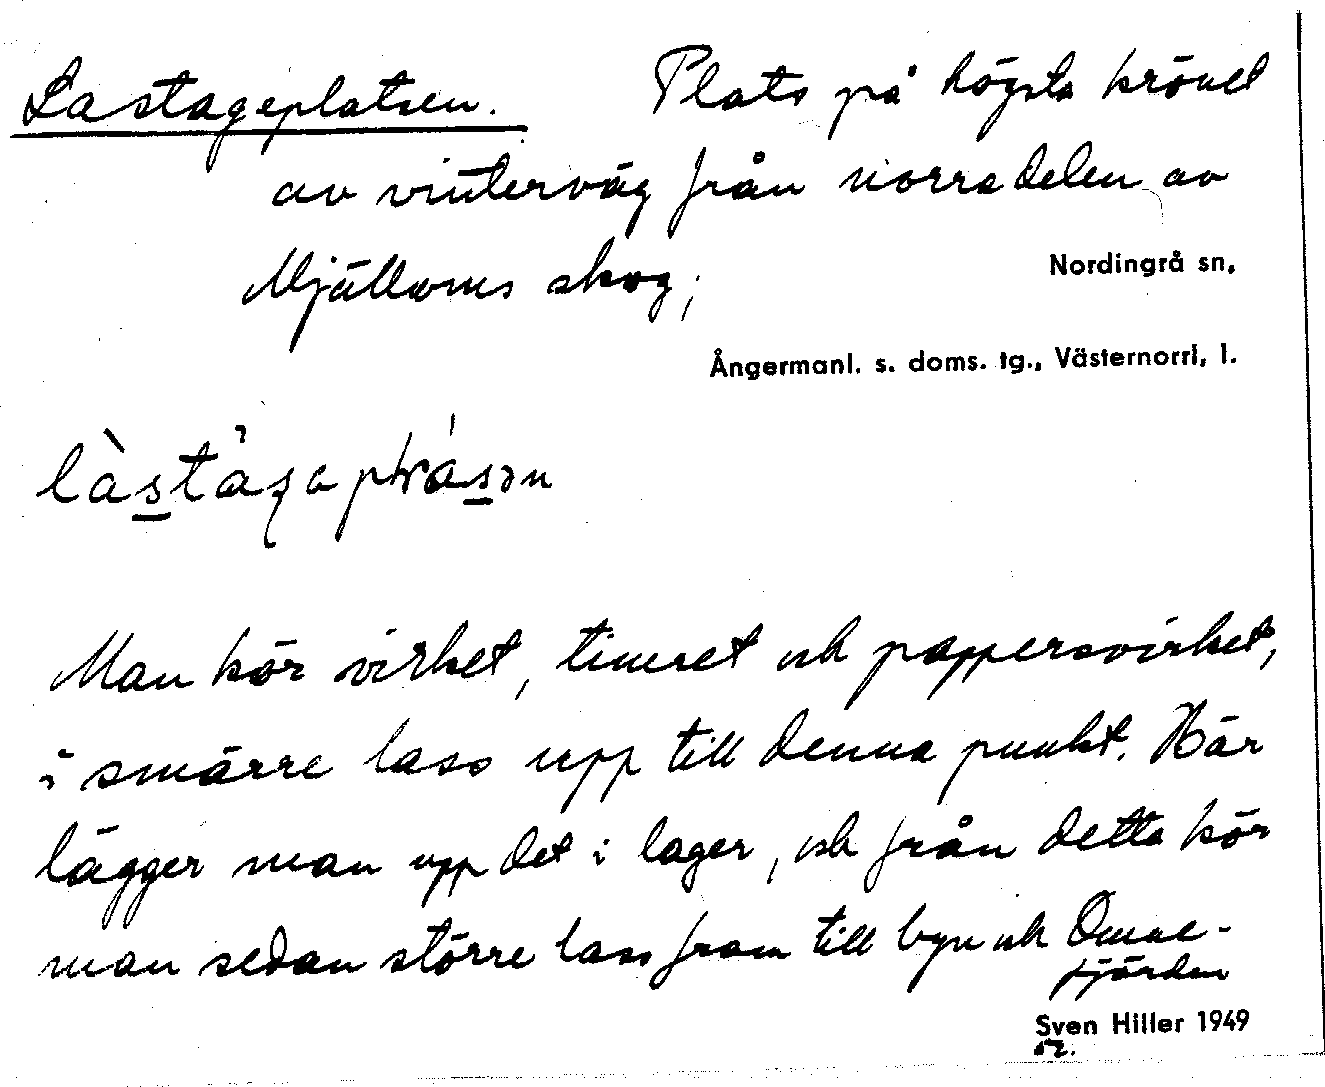 Lastageplatsen. Plats på högsta krönet
av vinterväg från norra delen av
Mjälloms skog;
Nordingrå sn,
Ångermanl. s. doms. tg., Västernorrl, l.
Man kör virket, timret och pappersvirket,
i smärre lass upp till denna punkt. Här
lägger man upp det i lager, och från detta kör
man sedan större lass fram till byn och Omne-
fjärden
Sven Hiller 1949
52.